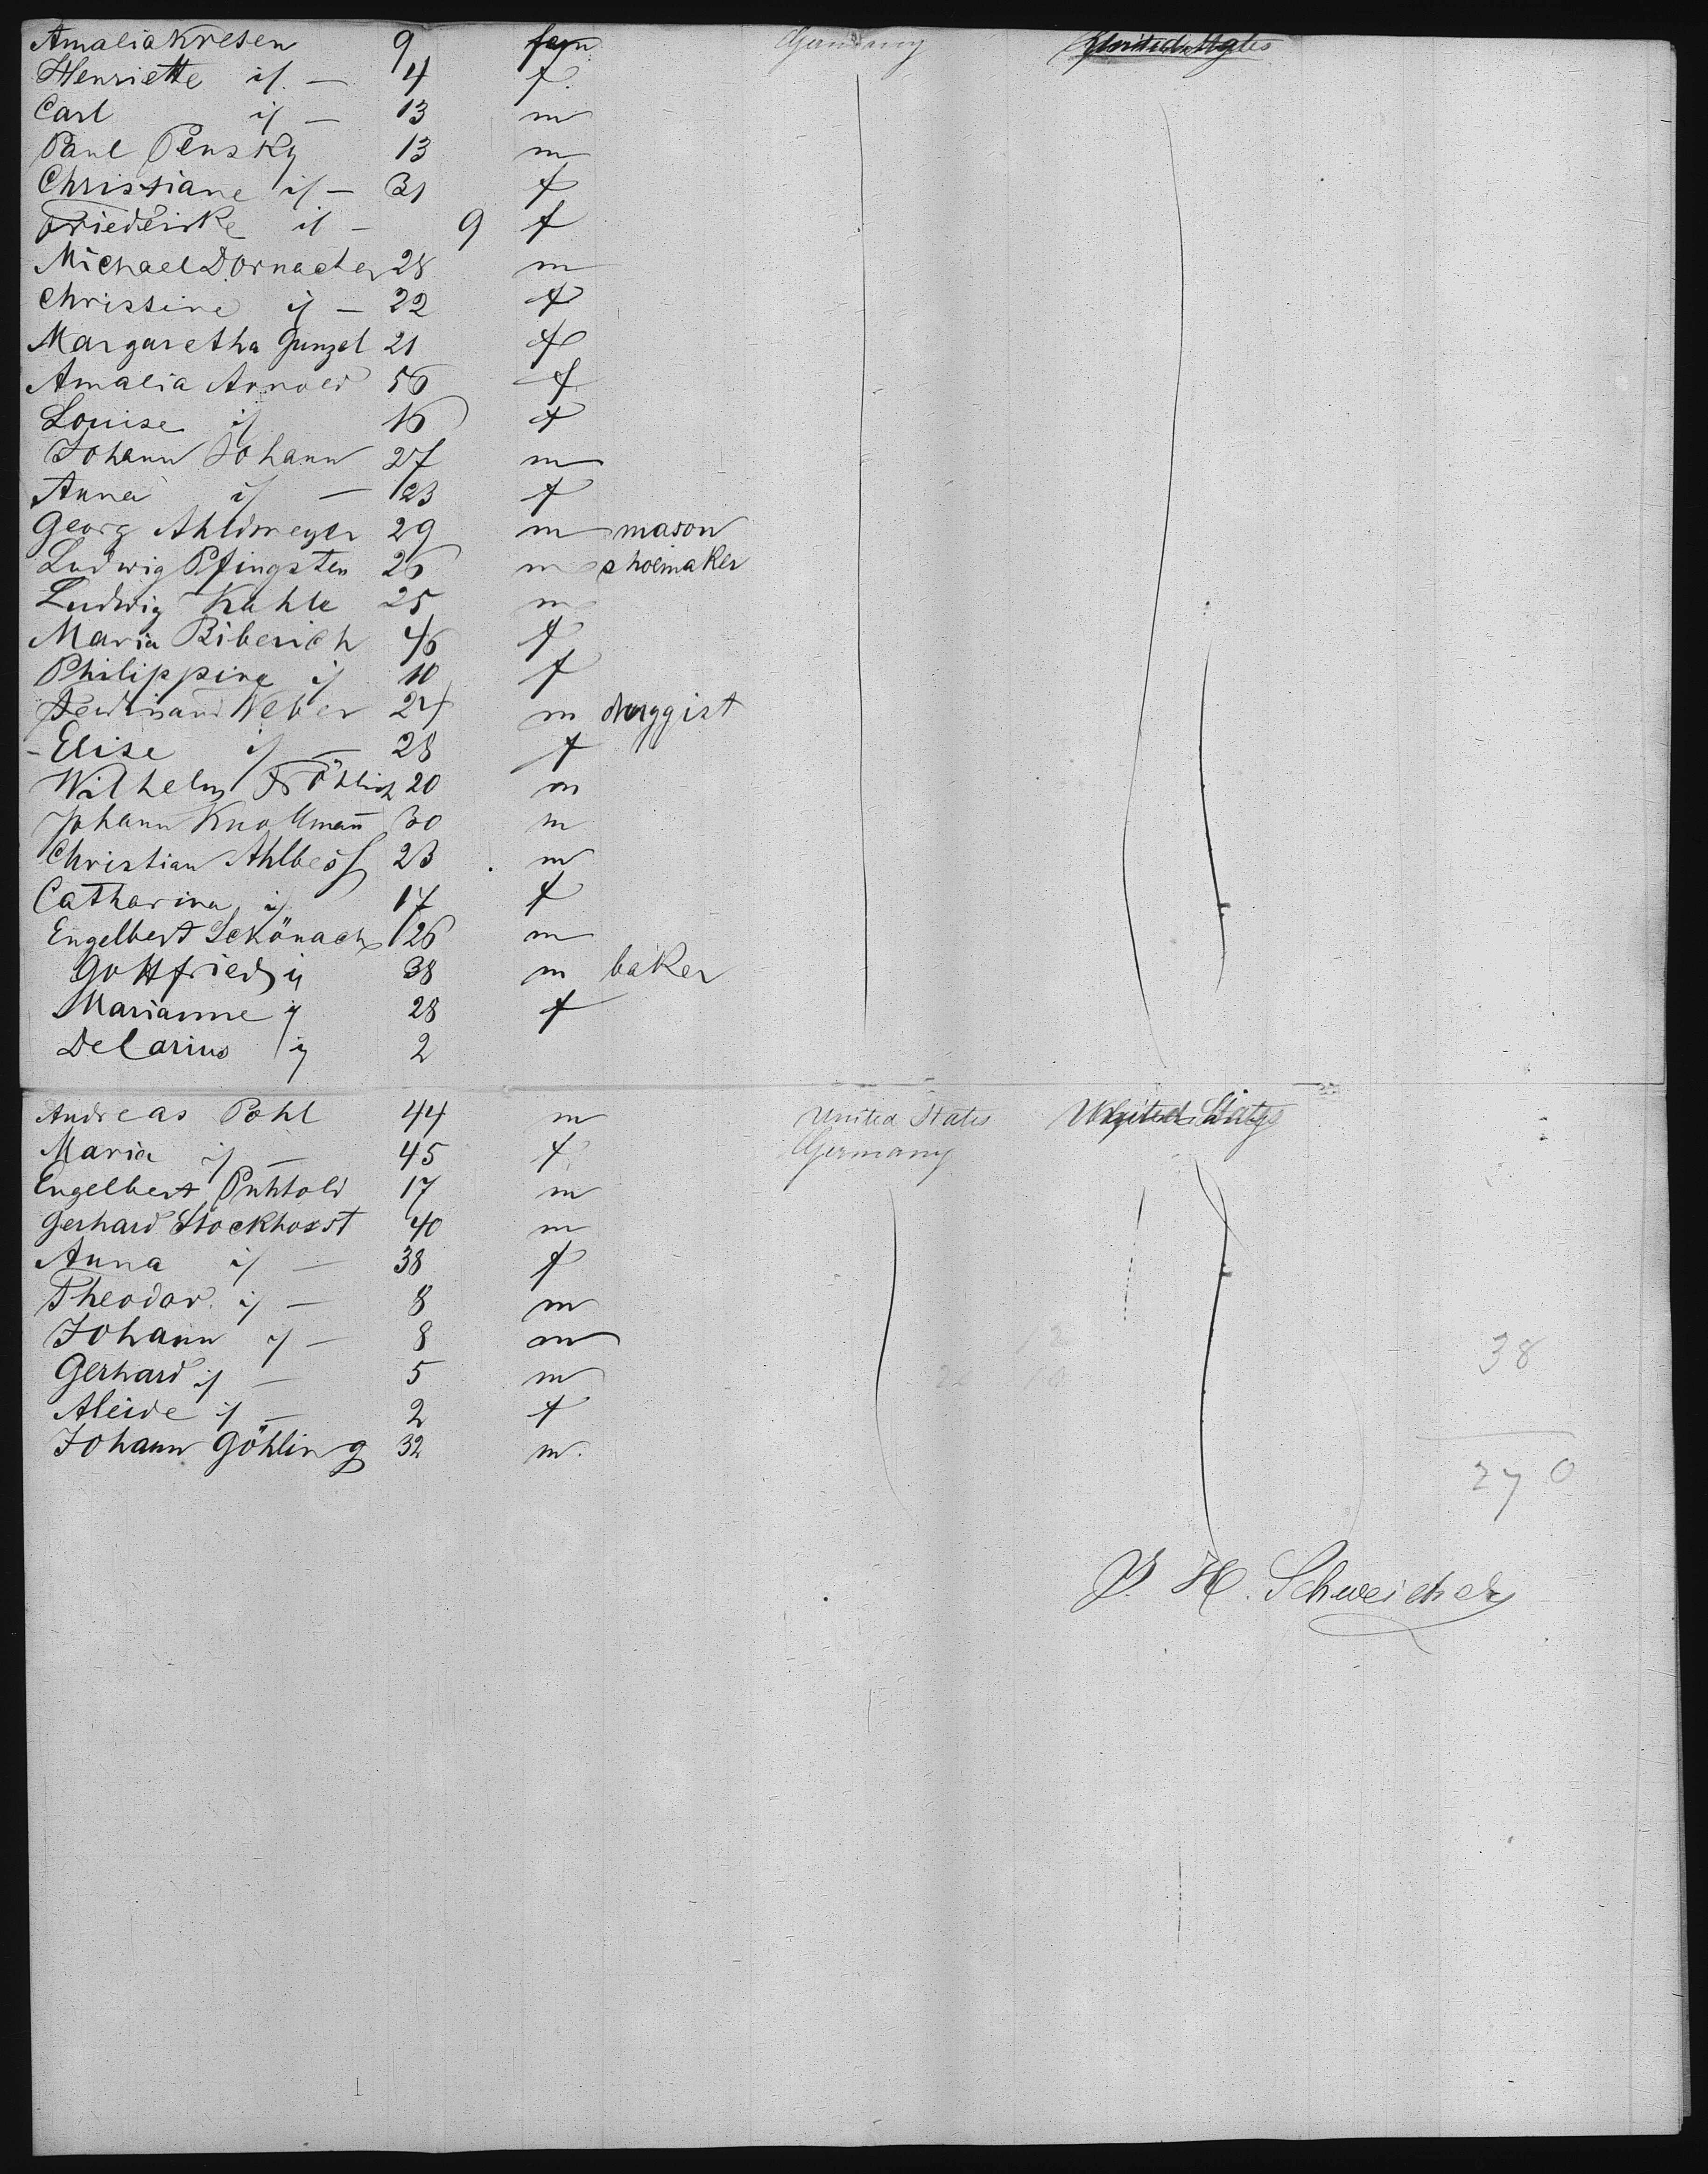 Amalia Kresen 9 fem Germany United States
Henriette if. — 4 f.
Carl if — 13 m
Paul Pensky 13 m
Christiane if — 31 f
Friederike if — 9 f
Michael Dornacher 28 m
Christine if — 22 f
Margaretha Gunzel 21 f
Amalia Arnold 56 f
Louise if 16 f
Johann Johann 27 m
Anna if — 23 f
Georg Ahldmeyer 29 m mason
Ludwig Pfingsten 26 m shoemaker
Ludwig Kahle 25 m
Maria Biberich 46 f
Philippine if 10 f
Ferdinand Weber 24 m druggist
Elise if — 28 f
Wilhelm Fröhlich 20 m
Johann Knollmann 30 m
Christian Ahlbess 23 m
Catharina if 17 f
Engelbert Schönach 26 m
Gottfried if 38 m baker
Marianne if 28 f
Delarius if 2
Andreas Pohl 44 m United States United States
Maria if — 45 f. Germany
Engelbert 17 m
Gerhard Stockhorst 40 m
Anna if — 38 f
Theodor. if — 8 m
Johann if — 8 m
38
Gerhard if — 5 m
Aleide if — 2 f
Johann Göhling 32 m.
270
J. H. Schweicher